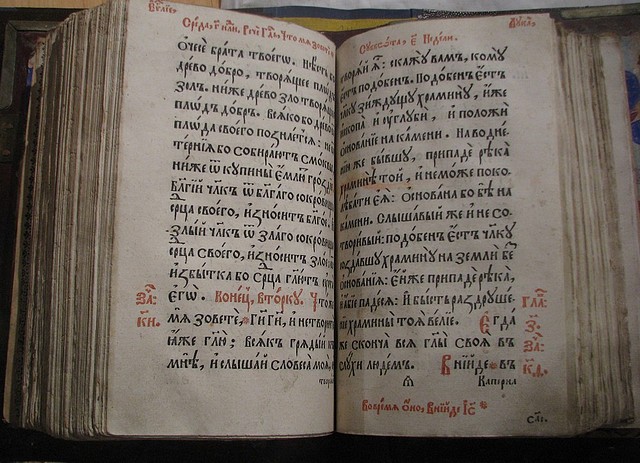 Среда, г҃ нлн. Рече Гдь, Что мѧ зовете
очесѐ брата твоегѡ̀. Нѣсть бо
древо добро, творѧщее плодъ
золъ. ниже древо зло творѧ
плодъ добръ. Всѧко бо древо
плода своего познаетсѧ: не
тернїѧ бо собираютъ смоквы
ниже ѿ купины емлютъ грозды
Благїй члкъ ѿ благаго сокровища
срца своего, износитъ благое.
злый члкъ ѿ злаго сокровища
срца своего, износитъ злое.
избытка бо срца глютъ уста
егѡ̀. Конецъ, вторку. Что
мѧ зовете, Гди Гди, и нетворите
ꙗже глю; всѧкъ грѧдый къ
мнѣ, и слышай словеса моѧ, и
За:
кн.
Суббота, е҃ Недели.
Лука,
творѧй ѧ: скажу вамъ, кому
есть подобенъ. Подобенъ есть
члку зиждущу храмину, иже
ископа и углуби, и положи
основанїе на камени. Наводне
нїю же бывшу, припаде рѣка
храминѣ той, и неможе поко
лебати еѧ: Основана бо бѣ на
камени. Слышавый же и не со
творивый: подобенъ есть члку
создавшу храмину на земли бе
основанїѧ: Ейже припаде рѣка,
и абїе падесѧ: и бысть раздруше
нїе храмины тоѧ велїе. Егда
же сконча всѧ глы своѧ въ
слухи людемъ. Вниде въ
Капернa
Вовремѧ оно, Вниде Іс҃
Гла:
з.
За:
к҃д.